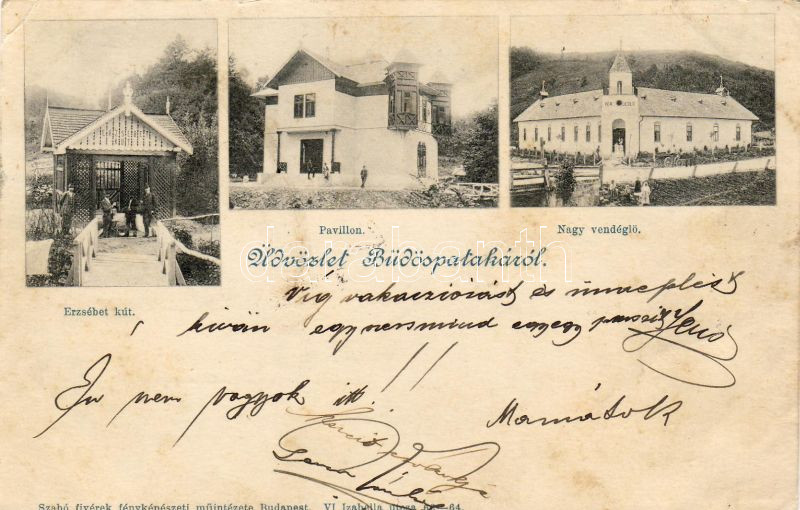 Pavillon.
Nagy vendéglö.
Üdvözlet Büdöspatakáról.
Erzsébet kút.
Víg vakacziózást és ünneplést
kiván egynersmind egyegy puszit Jenő
Én nem vagyok itt!!
Mamátok
Szabó fivérek fényképészeti müintézete Budapest. VI Izabella utcza 64.